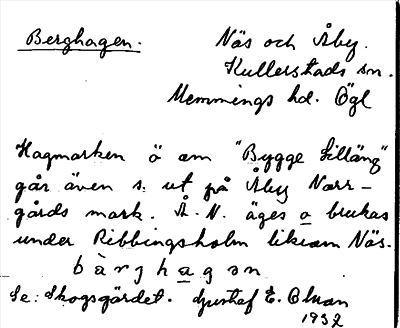 Berghagen. Näs och Åby.
Kullerstads sn.
Memmings hd. Ögl
Hagmarken ö om "Bygge Lilläng"
går även s. ut på Åby Norr-
gårds mark. Å. N. äges o brukas
under Ribbingsholm liksom Näs.
bàrjhagən
Se: Skogsgärdet. Gustaf E. Olson
1932